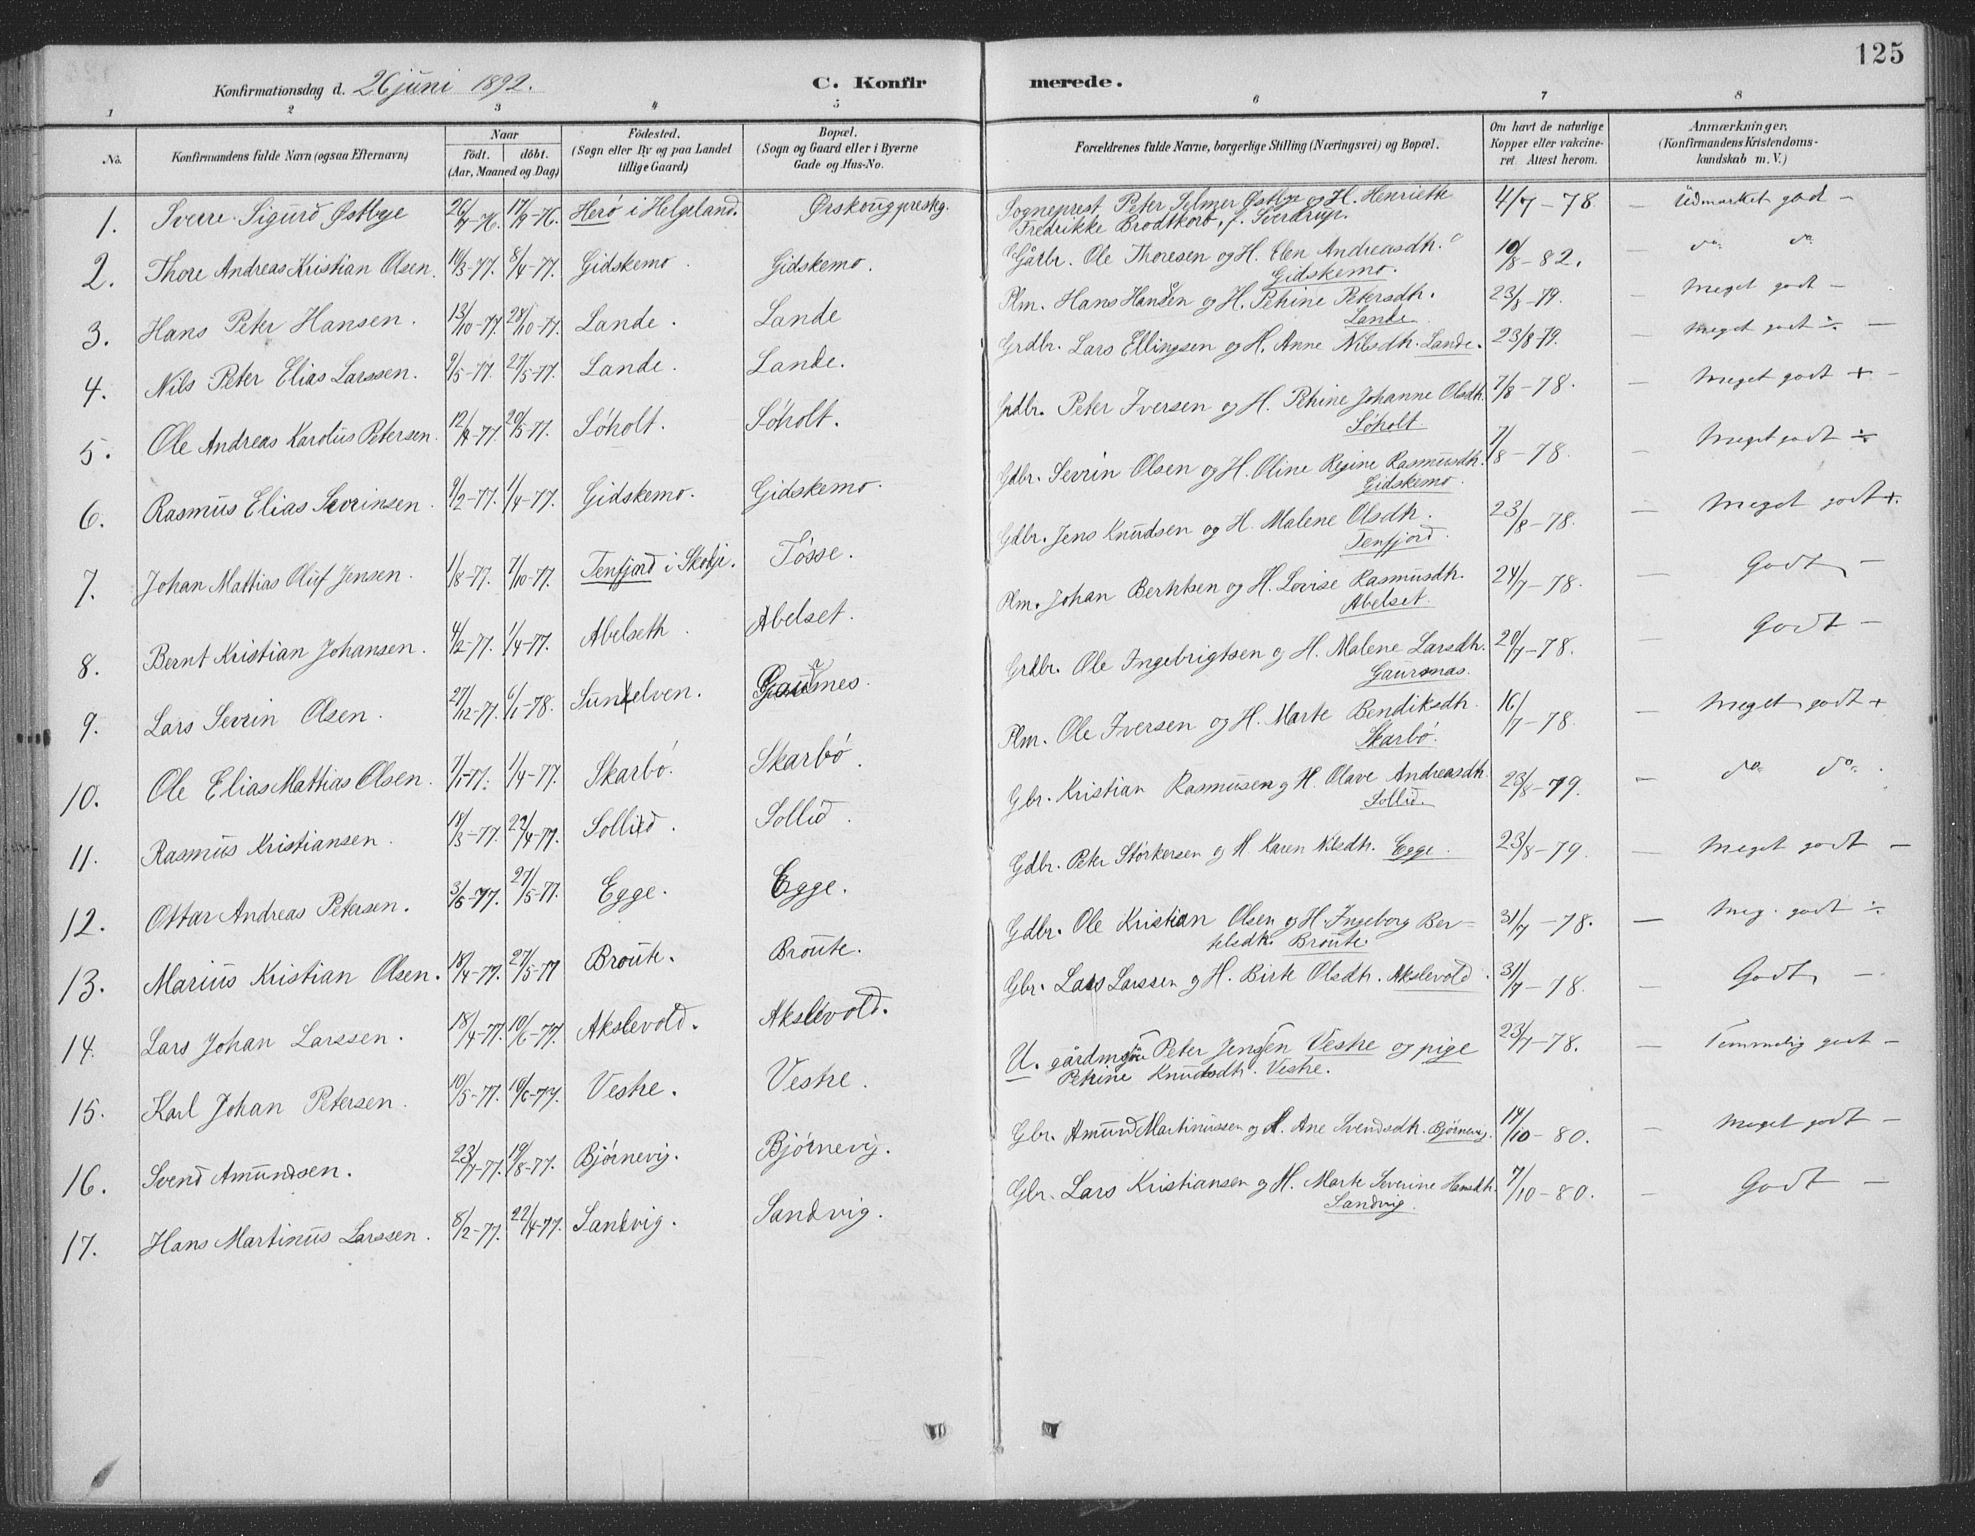 125
Konfirmationsdag d. 26 juni 1892. C. Konfirmerede.
1 2 3 4 5 6 7 8
No. Konfirmandens fulde Navn (ogsaa Efternavn)
Naar
födt. döbt.
(Aar, Maaned og Dag)
Födested.
(Sogn eller By og paa Landet
tillige Gaard)
Bopæl.
(Sogn og Gaard eller i Byerne
Gade og Hus-No.
Forældrenes fulde Navne, borgerlige Stilling (Næringsvei) og Bopæl.
Om havt de naturlige
Kopper eller vakcine-
ret. Attest herom.
Anmærkninger.
(Konfirmandens Kristendoms-
kundskab m. V.)
1. Sverre Sigurd Östbye 26/7-76. 17/9-76. Herö i Helgeland. Ørskougpresteg. Sogneprest Peter Selmer Östbye og H. Henriette 4/7-78 - Udmarket godt -
Fredrikke Brodtkorb, f. Sverdrup.
2. Thore Andreas Kristian Olsen. 10/3-77. 8/4-77. Gidskemo. Gidskemo. Gårbr. Ole Thoresen og H. Elen Andreasdtr. 10/8-82. - do do
Gidskemo.
3. Hans Peter Hansen. 13/10-77. 28/10-77. Lande. Lande Plm. Hans Hansen og H. Petrine Petersdtr. 23/8-79. - Meget godt -
Lande.
4. Nils Peter Elias Larssen. 9/5-77. 27/5-77. Lande. Lande. Grdbr. Lars Ellingsen og H. Anne Nilsdtr. Lande. 23/8-79. - Meget godt ÷ -
5. Ole Andreas Karolus Petersen. 12/4-77. 20/5-77. Söholt. Söholt. Grdbr. Peter Iversen og H. Petrine Johanne Olsdtr. 7/8-78. - Meget godt + -
Söholt
6. Rasmus Elias Sevrinsen. 9/2-77. 1/4-77. Gidskemo. Gidskemo. Gdbr. Sevrin Olsen og H. Oline Regine Rasmusdtr. 7/8-78. - Meget godt ÷
Gidskemo.
7. Johan Mattias Oluf Jensen. 1/8-77. 7/10-77. Tenfjord i Skodje. Tösse. Gdbr. Jens Knudsen og H. Malene Olsdtr. 23/8-78. - Meget godt +.
Tenfjord.
8. Bernt Kristian Johansen. 4/2-77. 1/4-77. Abelseth. Abelset. Plm. Johan Berntsen og H. Lovise Rasmusdtr. 24/7-78. - Godt -
Abelset.
9. Lars Sevrin Olsen. 27/12-77. 6/1-78. Sunelven. Gausnes. Grdbr. Ole Ingebrigtsen og H. Malene Larsdtr. 20/7-78. - Godt -
Gaursnas.
10. Ole Elias Mattias Olsen. 1/1-77. 1/4-77. Skarbö. Skarbö. Plm. Ole Iversen og H. Marte Bendiksdtr. 16/7-78. - Meget godt +
Skarbö.
11. Rasmus Kristiansen. 18/3-77. 22/4-77. Sollid. Sollid. Gbr. Kristian Rasmusen og H. Olave Andreasdtr. 23/8-79. - do do.
Sollid.
12. Ottar Andreas Petersen. 3/5-77. 27/5-77. Egge. Egge. Gdbr. Peter Störkersen og H. Karen Nilsdtr. Egge. 23/8-79. - Meget godt -
13. Marius Kristian Olsen. 18/4-77. 27/5-77 Broute. Broute. Gdbr. Ole Kristian Olsen og H. Ingeborg Ber- 31/7-78. - Meg. godt ÷
telsdtr. Broute.
14. Lars Johan Larssen. 18/4-77. 10/6-77. Akslevold. Akslevold. Gbr. Lars Larssen og H. Birte Olsdtr. Akslevold. 31/7-78. - Godt -
15. Karl Johan Petersen. 10/5-77. 10/6-77. Vestre. Vestre. U. gårdmsön Peter Jensen Vestre og pige 23/7-78. - Temmelig godt -
Petrine Knudsdtr. Vestre.
16. Svend Amundsen. 23/7-77. 19/8-77. Björnevig. Björnevig. Gbr. Amund Martinussen og H. Ane Svendsdtr. Björnevig. 14/10-80. - Meget godt -
17. Hans Martinus Larssen. 8/2-77. 22/4-77. Sandvig. Sandvig. Gbr. Lars Kristiansen og H. Marte Severine Hansdtr. 7/10-80. - Godt -
Sandvig.